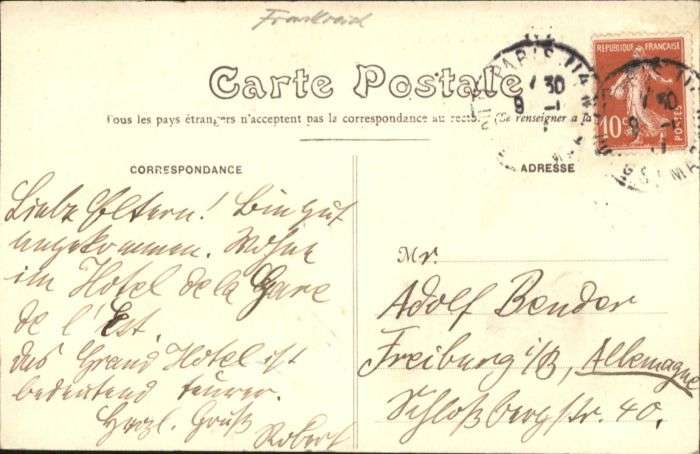 Frankreich
Carte Postale
Tous les pays étrangers n'acceptent pas la correspondance au recto. (Se renseigner a la
CORRESPONDANCE
ADRESSE
Liebe Eltern! Bin gut
angekommen. Wohne
im Hotel de la Gare
de l'Est.
das Grand Hotel ist
bedeutend teurer.
Herzl. Gruß
Robert
Mr.
Adolf Bender
Freiburg i/B, Allemagne
Schloßbergstr. 40.
REPUBLIQUE FRANÇAISE
10c
POSTES
PARIS
30
9 -1